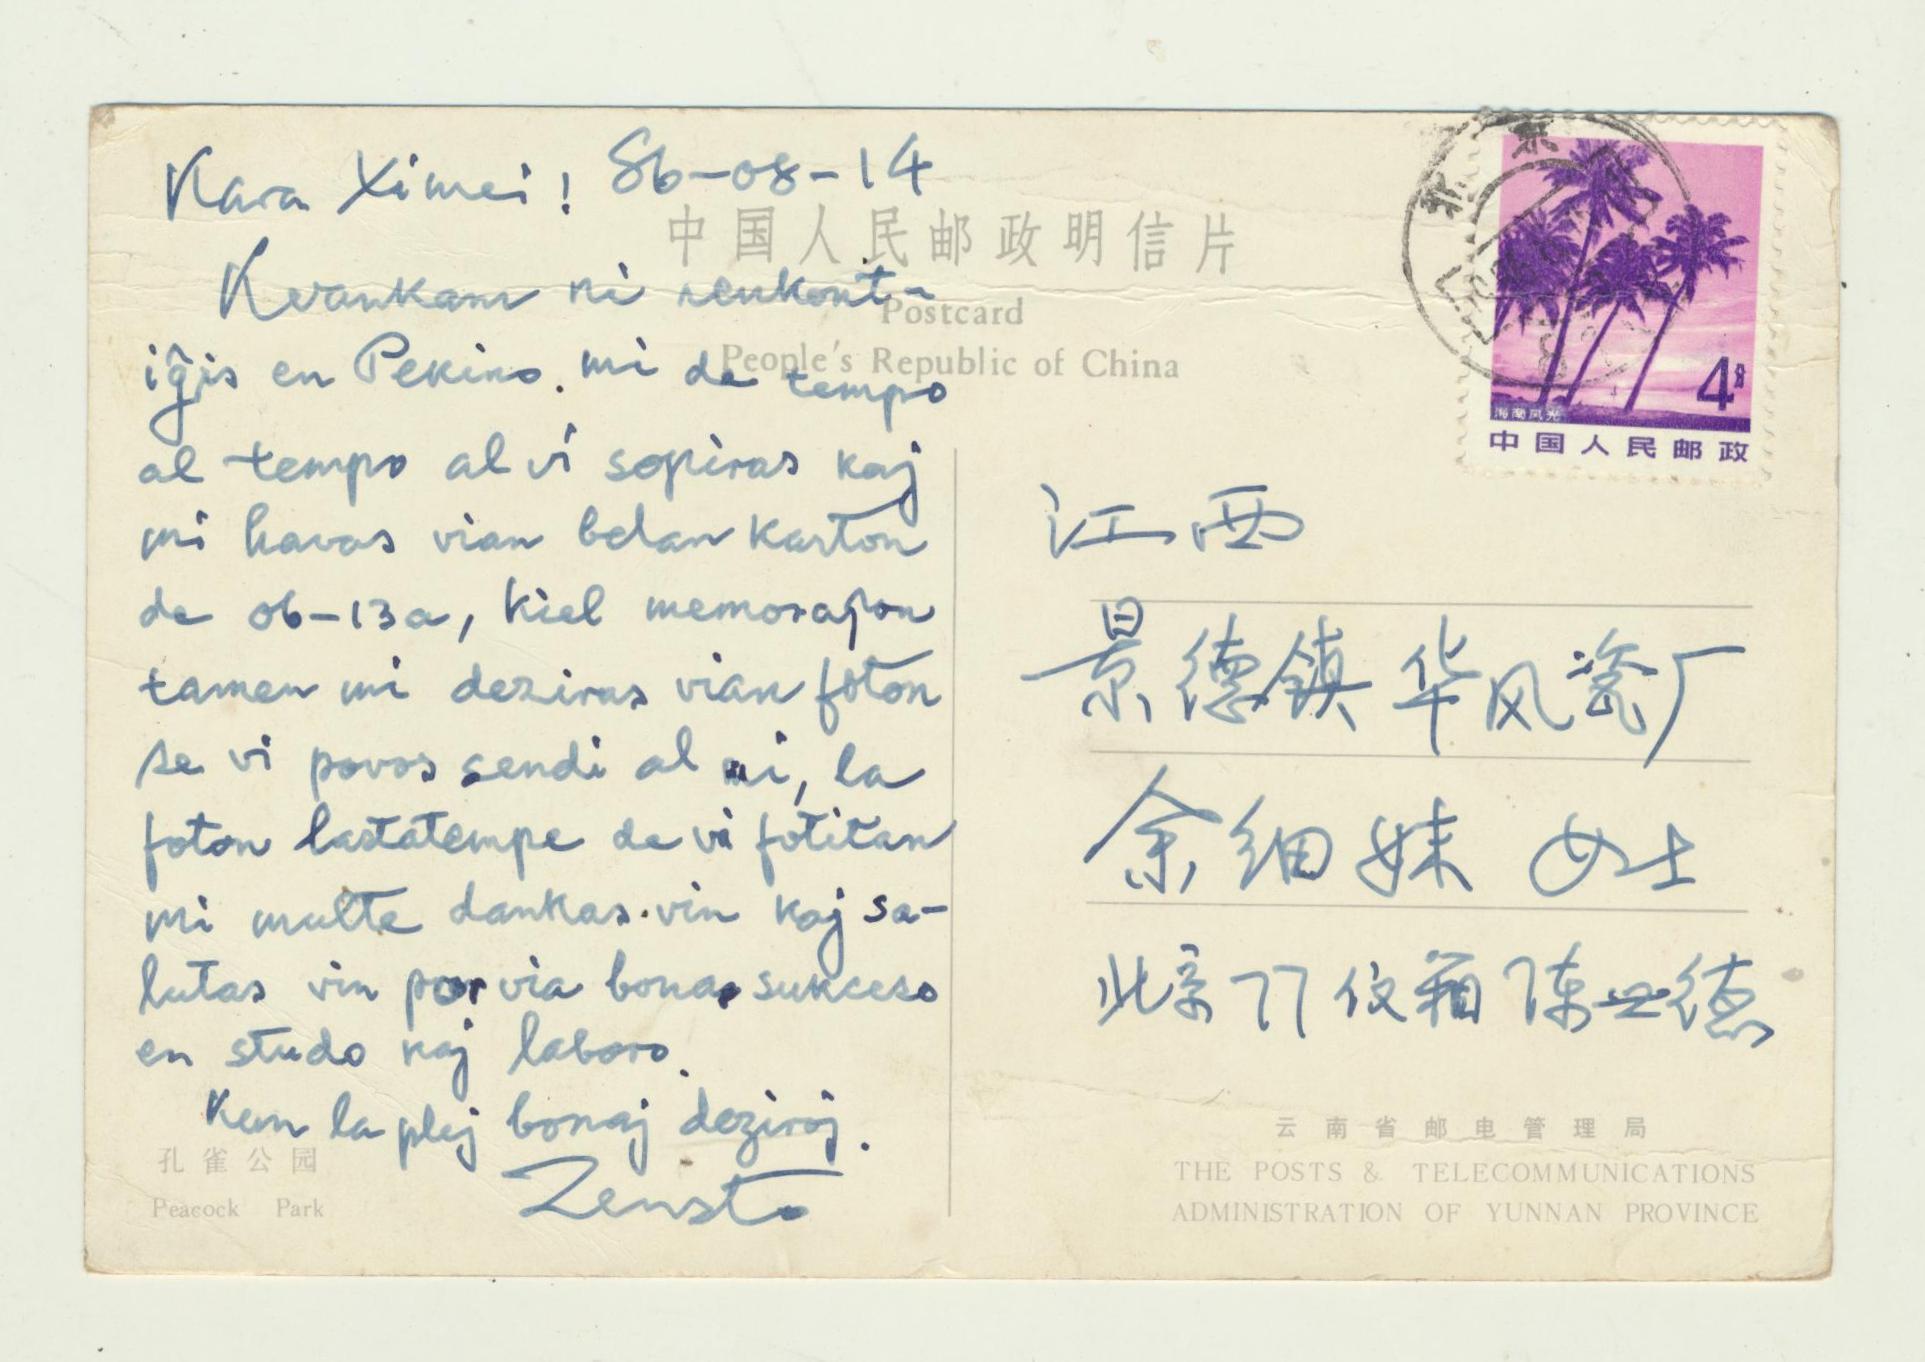 Kara Ximei! 86-08-14
中国人民邮政明信片
Postcard
People's Republic of China
Kvankam ni renkont-
iĝis en Pekino. mi de tempo
al tempo al vi sopiras kaj
mi havas vian belan karton
de 06-13a, kiel memoraĵon
tamen mi deziras vian foton
se vi povos sendi al mi, la
foton lastatempe de vi fotitan
mi multe dankas vin kaj sa-
lutas vin por via bona sukceso
en studo kaj laboro.
Kun la plej bonaj deziroj.
Zensto
孔雀公园
Peacock Park
北京
4分
海南风光
中国人民邮政
江西
景德镇华风瓷厂
余细妹 女士
北京77信箱 陈世德
云南省邮电管理局
THE POSTS & TELECOMMUNICATIONS
ADMINISTRATION OF YUNNAN PROVINCE